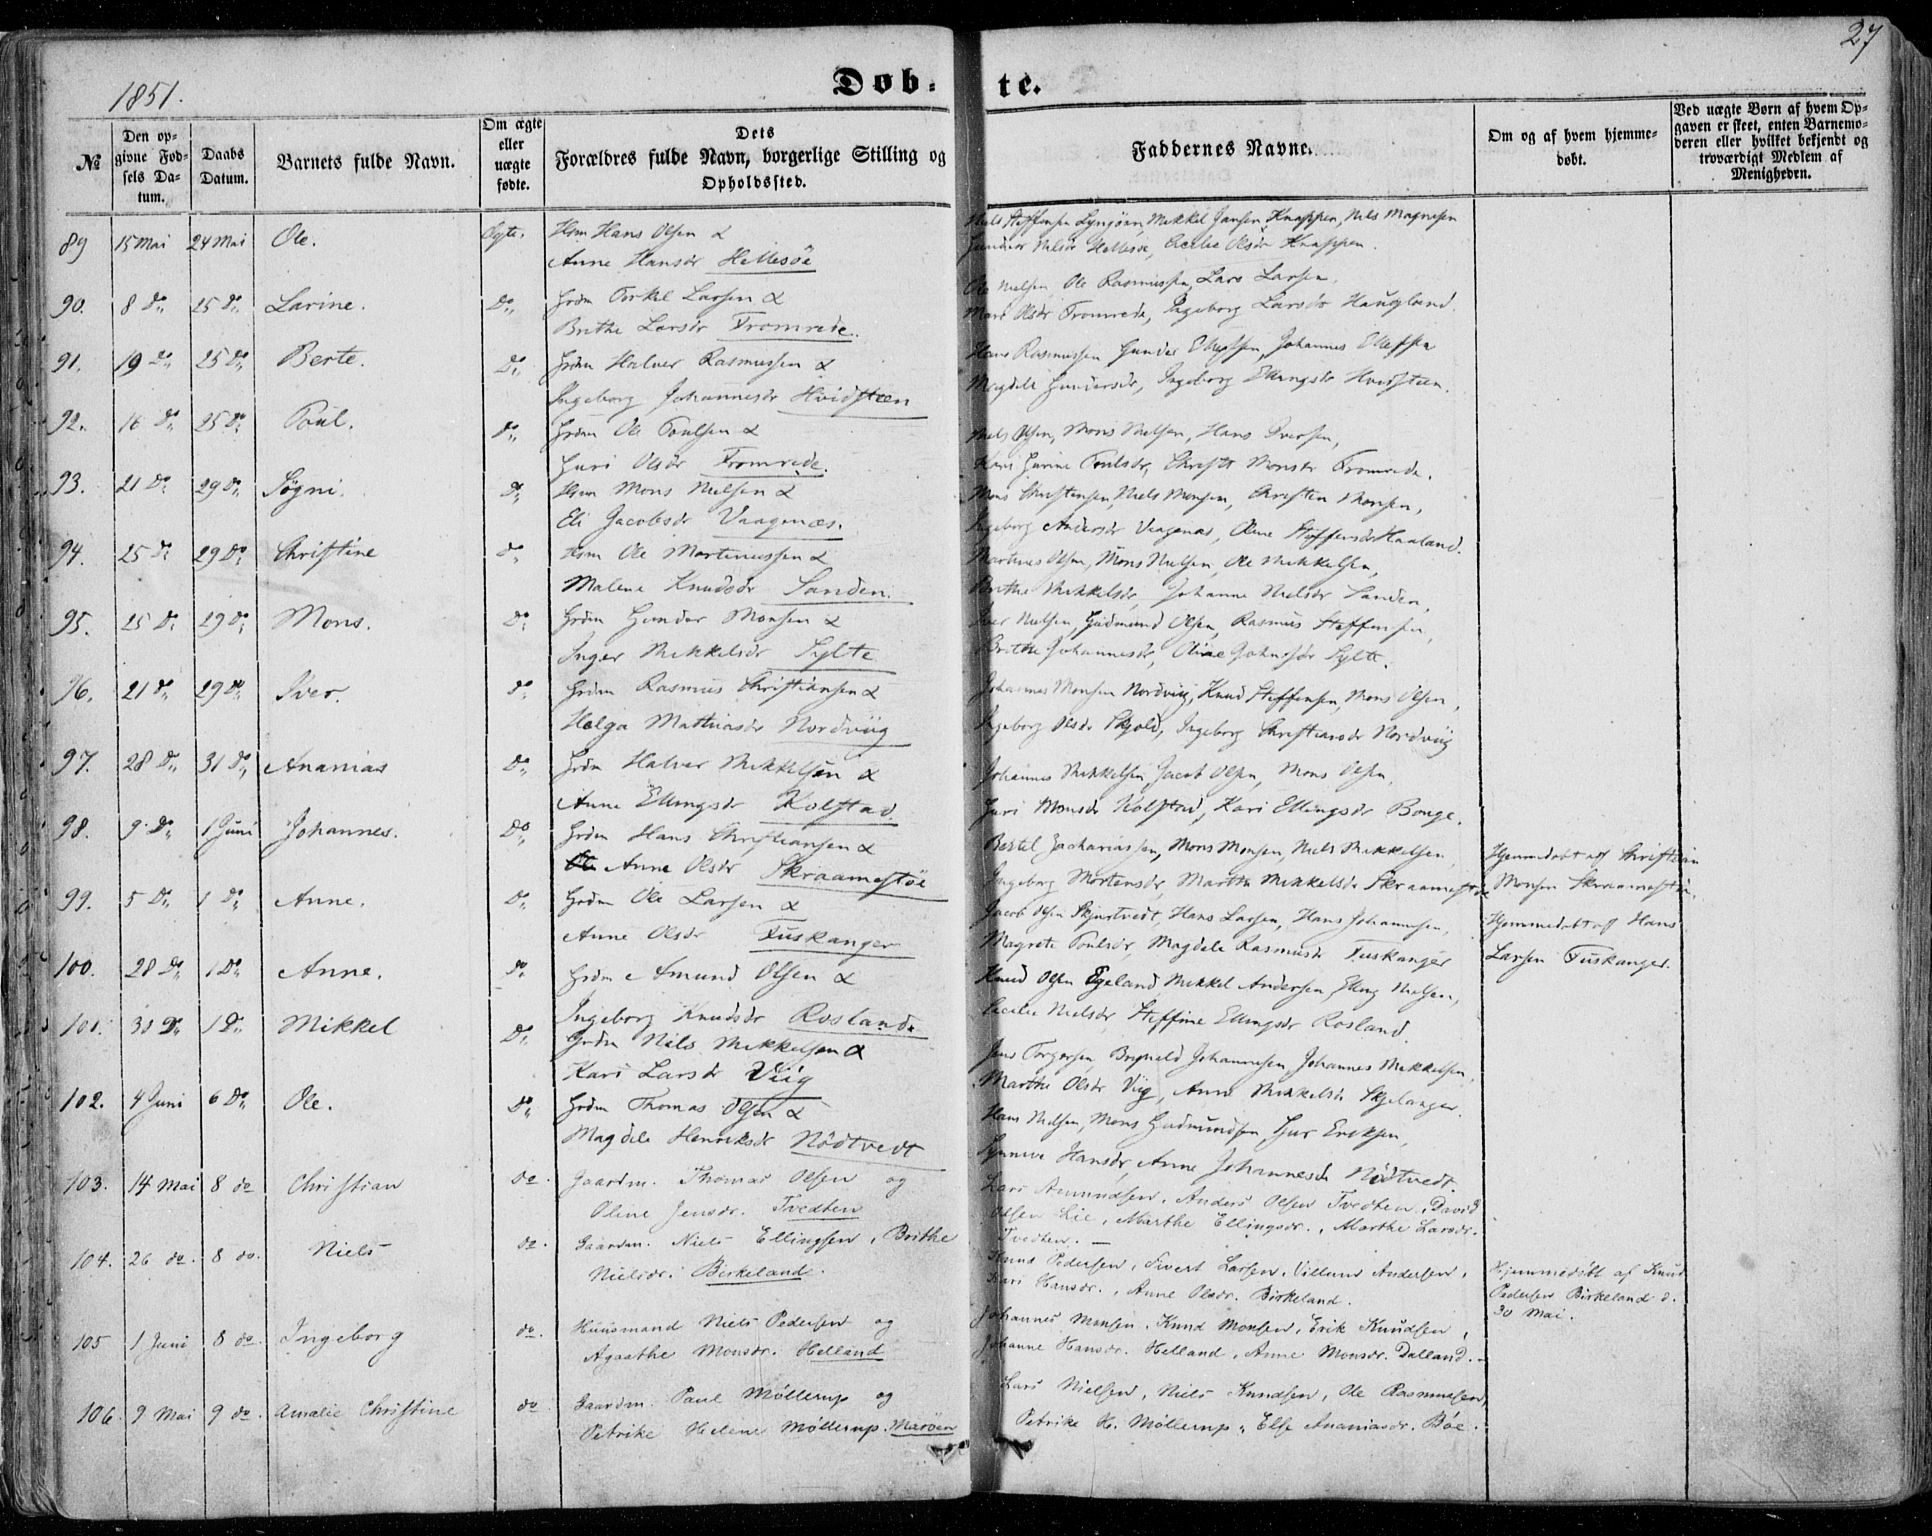 27
1851.
Døb-te.
№
Den opgivne Fødsels Datum.
Daabs Datum.
Barnets fulde Navn.
Om ægte eller uægte fødte.
Dets Forældres fulde Navn, borgerlige Stilling og Opholdssted.
Faddernes Navne.
Om og af hvem hjemmedøbt.
Ved uægte Børn af hvem Opgaven er skeet, enten Barnemoderen eller hvilket bekjendt og troværdigt Medlem af Menigheden.
89 15 Mai 24 Mai Ole. Ægte. Hsm Hans Olsen &
Anne Hansdr Hellesöe
Niels Steffensen Lyngöen, Mikkel Jansen Knappen, Nils Magnesen
Nilsdr Hellesöe, Cecilie Olsdr Knappen.
90. 8 do 25 do Larine. Do Grdm Torkel Larsen &
Brithe Larsdr Fromrede.
Ole Nielsen, Ole Rasmussen, Lars Larsen,
Mari Olsdr Fromrede, Ingeborg Larsdr Haugland.
91. 19 do 25 do Berte. Do Grdm Halver Rasmussen &
Ingeborg Johannesdr Hvidsteen
Hans Rasmussen Gunder Johannes
Magdele Gundersdr, Ingeborg Ellingsdr Hvidsteen.
92. 16 do 25 do Poul. do Grdm Ole Poulsen &
Guri Olsdr Fromrede.
Niels Olsen, Mons Nielsen, Hans Iversen,
Kari Gurine Poulsdr, Monsdr Fromrede.
93. 21 do 29 do Søgni. do Hsm Mons Nielsen &
Eli Jacobsdr Vaagenæs.
Mons Christensen, Niels Monsen, Christen Monsen,
Ingeborg Andersdr Vaagenæs, Oline Steffensdr Haaland.
94. 25 do 29 do Christine do Hsm Ole Martinussen &
Malene Knudsdr Sanden.
Martinus Olsen, Mons Nielsen, Ole Mikkelsen,
Brithe Mikkelsdr, Johanne Nielsdr Sanden,
95. 25 do 29 do Mons. do Grdm Gunder Monsen &
Inger Mikkelsdr Sylte
Iver Nielsen, Gudmund Olsen, Rasmus Steffensen,
Brithe Johannesdr, Oline Johnsdr Sylte.
96. 21 do 29 do Iver. do Grdm Rasmus Christiansen &
Helga Mathiasdr Nordviig
Johannes Monsen Nordviig, Knud Steffensen, Mons Olsen,
Ingeborg Olsdr Skjold, Ingeborg Christiansdr Nordviig
97. 28 do 31 do Ananias do Grdm Halver Mikkelsen &
Anne Ellingsdr Kolstad
Johannes Mikkelsen, Jacob Olsen, Mons Olsen,
Guri Monsdr Kolstad, Kari Ellingsdr Bonge.
98. 9 do 1 Juni Johannes. Do Grdm Hans Christiansen &
Anne Olsdr Skraamestöe
Bertel Zachariassen, Mons Monsen, Niels Mikkelsen
Ingeborg Mortensdr, Marthe Mikkelsdr Skraamestöe
Hjemmedøbt af Christian
Monsen Skraamestöe.
99. 5 do 1 do Anne. do Grdm Ole Larsen &
Anne Olsdr Tuskanger
Jacob Olsen Skjurtvedt, Hans Larsen, Hans Johannesen,
Magrete Poulsdr, Magdele Rasmusdr Tuskanger
Hjemmedøbt af Hans
Larsen Tuskanger.
100. 28 do 1 do Anne. do Grdm Amund Olsen &
Ingeborg Knudsdr Rosland
Knud Olsen Egeland Mikkel Andersen, Elling Nielsen,
Cecilie Nielsdr, Steffine Ellingsdr Rosland.
101. 30 do 1 do Mikkel do Grdm Nils Mikkelsen &
Kari Larsdr Viig
Jens Torgersen, Johannesen, Johannes Mikkelsen,
Marthe Olsdr Viig, Anne Mikkelsdr Skjelanger.
102. 4 Juni 6 do Ole. do Grdm Thomas Olsen &
Magdele Henriksdr Nödtvedt
Hans Nielsen, Mons Gudmundsen, Sjur Eriksen,
Synneve Hansdr, Anne Johannesdr Nödtvedt.
103. 14 Mai 8 do Christian do. Gaardm. Thomas Olsen og
Oline Jensdr. Tvedten
Lars Amundsen, Anders Olsen Tvedten, David
Olsen Lie, Marthe Ellingsdr., Marthe Larsdr.
Tvedten. —
104. 26 do. 8 do. Niels do. Gaardm. Niels Ellingsen, Brithe
Nielsdr. Birkeland.
Knud Pedersen, Sivert Larsen, Villum Andersen,
Kari Hansdr., Anne Olsdr. Birkeland.
Hjemmedöbt af Knud
Pedersen Birkeland d.
30 Mai.
105 1 Juni 8 do. Ingeborg do. Huusmand Niels Pedersen og
Agaathe Monsdr. Helland
Johannes Monsen, Knud Monsen, Erik Knudsen,
Johanne Hansdr. Helland, Anne Monsdr. Dalland. —
106. 9 Mai 9 do. Amalie Christine do Gaardm. Paul Möllerup og
Petrike Helene Möllerup. Maröen
Lars Nielsen, Niels Knudsen, Ole Rasmussen,
Petrike H. Möllerup, Else Ananiasdr. Böe.